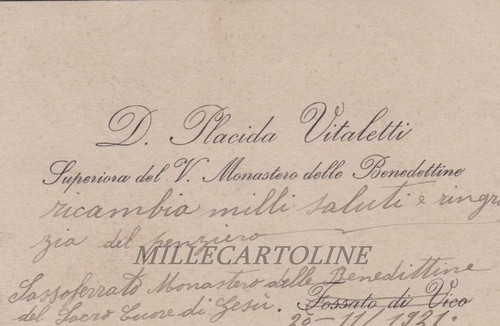 D. Placida Vitaletti
Superiora del V. Monastero delle Benedettine
ricambia milli saluti e ringra
zia del penziero
MILLECARTOLINE
Sassoferrato Monastero delle Benedittine
del Sacro Cuore di Gesù. Fossato di Vico
20-11-1921.